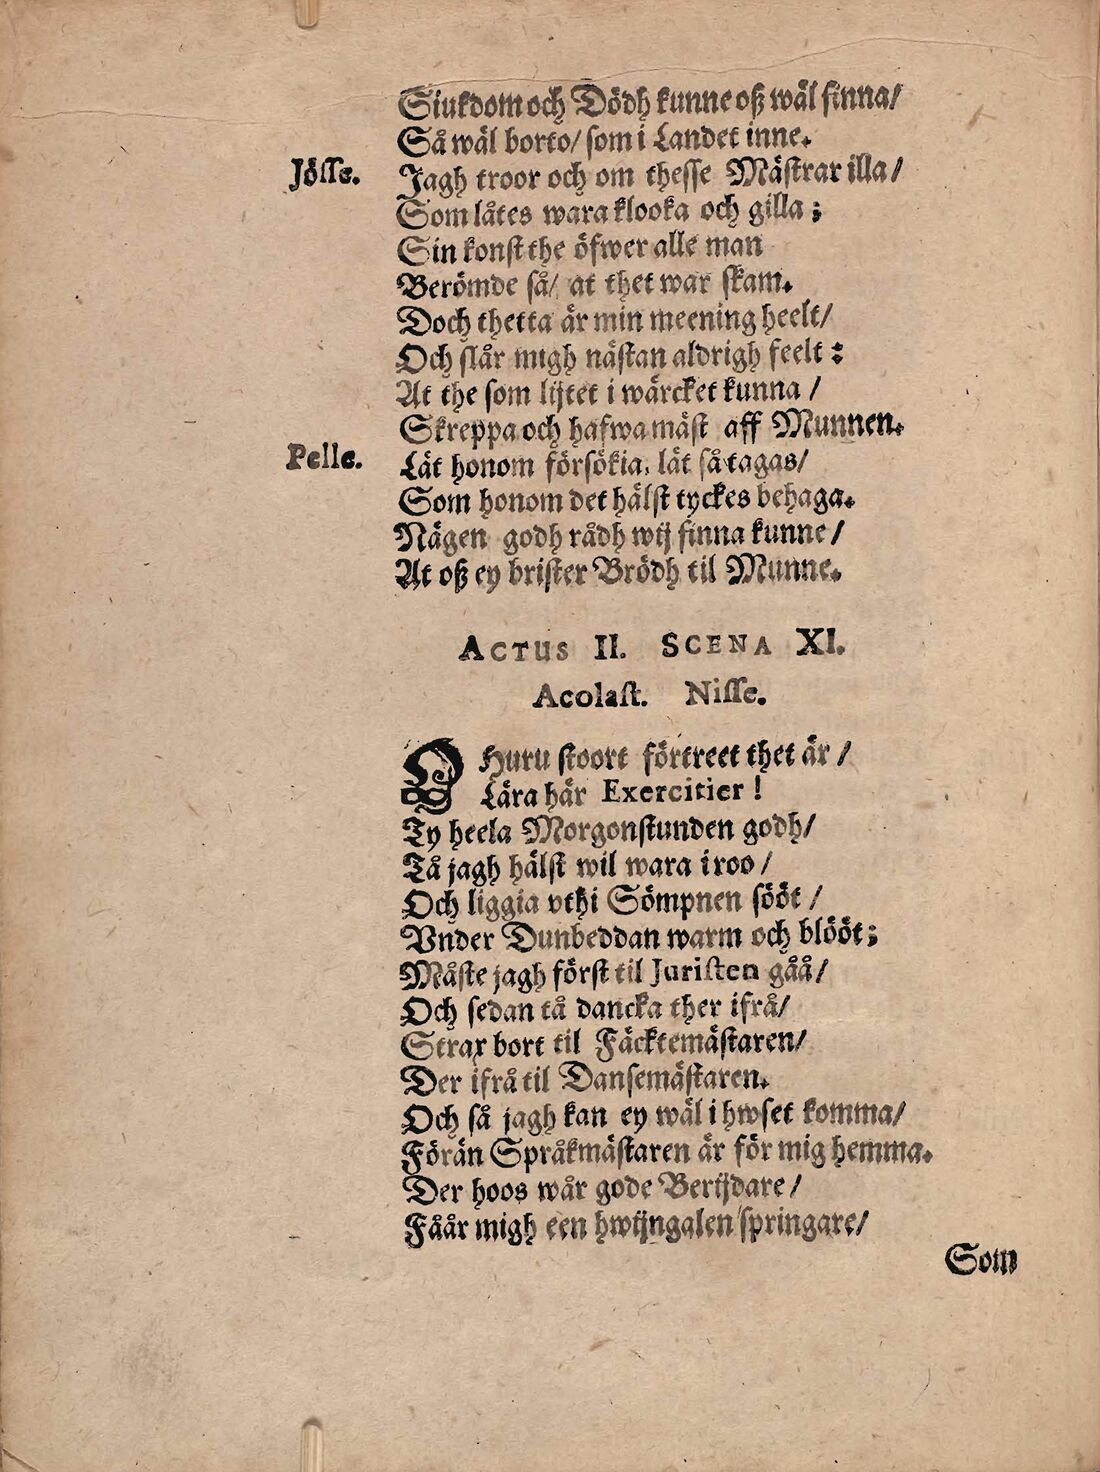 Siukdom och Dödh kunne oß wäl finna/
Så wäl borto/ som i Landet inne.
Jösse. Jagh troor och om thesse Mästrar illa/
Som låtes wara klooka och gilla;
Sin konst the öfwer alle man
Berömde så/ at thet war skam.
Doch thetta är min meening heelt/
Och slår migh nästan aldrigh feelt:
At the som lijtet i wärcket kunna/
Skreppa och hafwa mäst aff Munnen.
Pelle. Lät honom försökia, lät så tagas/
Som honom det hälst tyckes behaga.
Nägen godh rådh wij finna kunne/
At oß ey brister Brödh til Munne.
ACTUS II. SCENA XI.
Acolast. Nisse.
O Huru stoort förtreet thet är/
Lära här Exercitier!
Ty heela Morgonstunden godh/
Tå jagh hälst wil wara i roo/
Och liggia vthi Sömpnen sööt/
Vnder Dunbeddan warm och blööt;
Måste jagh först til Juristen gåå/
Och sedan tå dancka ther ifrå/
Strax bort til Fäcktemästaren/
Der ifrå til Dansemästaren.
Och så jagh kan ey wäl i hwset komma/
Förän Språkmästaren är för mig hemma.
Der hoos wår gode Berijdare/
Fåår migh een hwijngalen springare/
Som